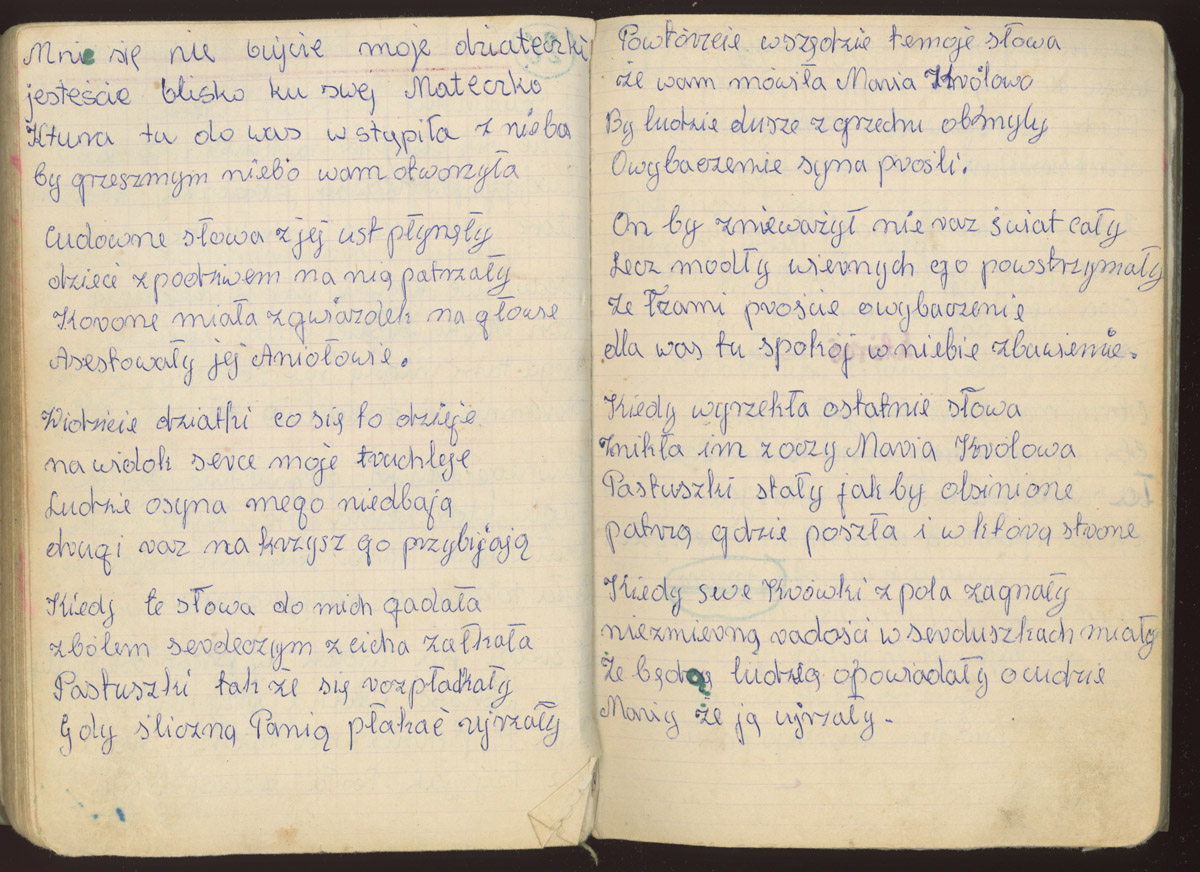 Mnie się nie bujcie moje dziateczki
jesteście blisko ku swej Mateczko
Ktura tu do was wstąpiła z nieba
by grzesznym niebo wam otworzyła
Cudowne słowa z jej ust płynęły
dzieci z podziwem na nią patrzały
Korone miała z gwiazdek na głowie
Asestowały jej Aniołowie.
Widzicie dziatki co się to dzieje
na widok serce moje truchleje
Ludzie osyna mego niedbają
drugi raz na krzysz go przybijają
Kiedy te słowa do nich gadała
z bólem serdeczym z cicha załkała
Pastuszki tak że się rozpłakały
Gdy śliczną Panią płakać ujrzały
Powtórzcie wszędzie temoje słowa
że wam mówiła Maria Królowo
By ludzie dusze z grzechu obmyly
Owybaczenie syna prośli.
On by znieważył nie raz świat cały
Lecz modły wiernych go powstrzymały
Ze łzami proście owybaczenie
dla was tu spokój w niebie zbawienie.
Kiedy wyrzekła ostatnie słowa
Znikła im z oczy Maria Królowa
Pastuszki stały jak by olsinione
patrzą gdzie poszła i w którą strone
Kiedy swe Krówki z pola zagnały
niezmierną radości w serduszkach miały
że będą ludzią opowiadały o cudzie
Maniy że ją ujrzały.